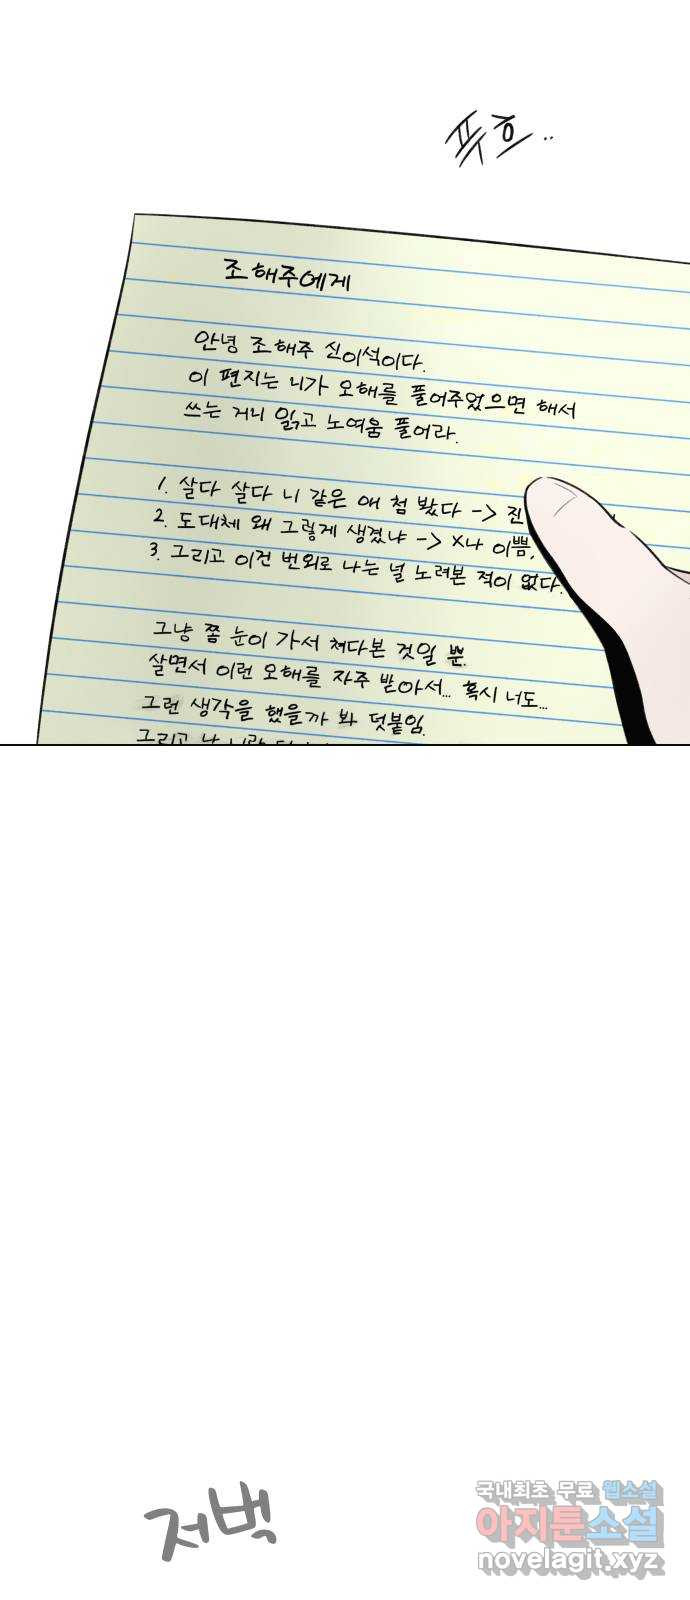 푸흐..
조해주에게
안녕 조해주 신이석이다.
이 편지는 니가 오해를 풀어주었으면 해서
쓰는 거니 읽고 노여움 풀어라.
1. 살다 살다 니 같은 애 첨 봤다 -> 진
2. 도대체 왜 그렇게 생겼냐 -> X나 이쁨,
3. 그리고 이건 번외로 나는 널 노려본 적이 없다.
그냥 쫌 눈이 가서 쳐다본 것일 뿐.
살면서 이런 오해를 자주 받아서... 혹시 너도...
그런 생각을 했을까 봐 덧붙임.
그리고 나
저벅
국내최초 무료 웹소설
아지툰소설
novelagit.xyz